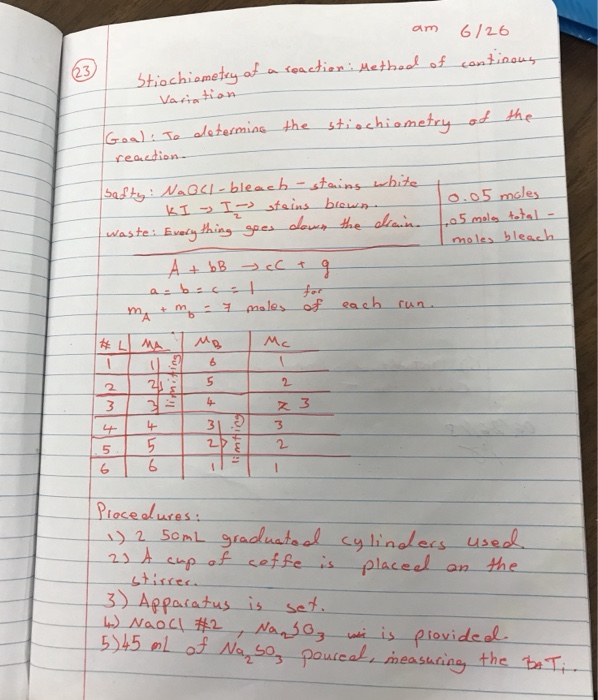 am 6/26
23
Stiochiometry of a reaction: Method of continous
Variation
Goal: To determine the stiochiometry of the
reaction.
Safty: NaOCl - bleach - stains white
KI → I2 → stains brown.
Waste: Every thing goes down the drain.
0.05 moles
.05 mole total -
moles bleach
A + bB → cC + g
a = b = c = 1
mA + mb = 7 moles of each run.
for
# L MA MB MC
1 1 6 1
2 2 5 2
3 3 4 3
4 4 3 3
5 5 2 2
6 6 1 1
limiting
limiting
Procedures:
1) 2 50mL graduated cylinders used.
2) A cup of coffe is placed on the
stirrer.
3) Apparatus is set.
4) NaOCl #2, Na2SO3 is provided.
5) 45 mL of Na2SO3 poured, measuring the Ti.